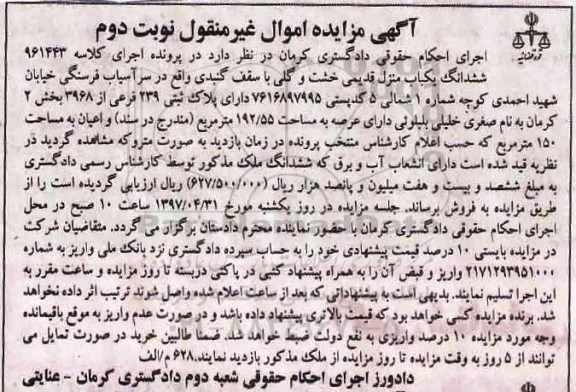 آگهی مزایده اموال غیرمنقول نوبت دوم
اجرای احکام حقوقی دادگستری کرمان در نظر دارد در پرونده اجرای کلاسه ۹۶۱۴۴۳
ششدانگ یکباب منزل قدیمی خشت و گلی با سقف گنبدی واقع در سرآسیاب فرسنگی خیابان
شهید احمدی کوچه شماره ۱ شمالی ۵ کدپستی ۷۶۱۶۸۹۷۹۹۵ دارای پلاک ثبتی ۲۳۹ فرعی از ۳۹۶۸ بخش ۲
کرمان به نام صغری خلیلی بلبلوئی دارای عرصه به مساحت ۱۹۲/۵۵ مترمربع (مندرج در سند) و اعیان به مساحت
۱۵۰ مترمربع که حسب اعلام کارشناس منتخب پرونده در زمان بازدید به صورت متروکه مشاهده گردید در
نظریه قید شده است دارای انشعاب آب و برق که ششدانگ ملک مذکور توسط کارشناس رسمی دادگستری
به مبلغ ششصد و بیست و هفت میلیون و پانصد هزار ریال (۶۲۷/۵۰۰/۰۰۰) ریال ارزیابی گردیده است را از
طریق مزایده به فروش برساند. جلسه مزایده در روز یکشنبه مورخ ۱۳۹۷/۰۴/۳۱ ساعت ۱۰ صبح در محل
اجرای احکام حقوقی دادگستری کرمان با حضور نماینده محترم دادستان برگزار می گردد. متقاضیان شرکت
در مزایده بایستی ۱۰ درصد قیمت پیشنهادی خود را به حساب سپرده دادگستری نزد بانک ملی واریز به شماره
۲۱۷۱۲۹۳۹۵۱۰۰۰ واریز و قبض آن را به همراه پیشنهاد کتبی در پاکتی دربسته تا روز مزایده و ساعت مقرر به
این اجرا تسلیم نمایند. بدیهی است به پیشنهاداتی که بعد از ساعت اعلام شده واصل شوند ترتیب اثر داده نخواهد
شد. برنده مزایده کسی خواهد بود که قیمت بالاتری پیشنهاد داده باشد و در صورت عدم واریز به موقع باقیمانده
وجه مورد مزایده ۱۰ درصد واریزی به نفع دولت ضبط خواهد شد. ضمناً طالبین خرید در صورت تمایل می
توانند از ۵ روز به وقت مزایده تا روز مزایده از ملک مذکور بازدید نمایند. ۶۲۸ م/الف
دادورز اجرای احکام حقوقی شعبه دوم دادگستری کرمان - عنایتی